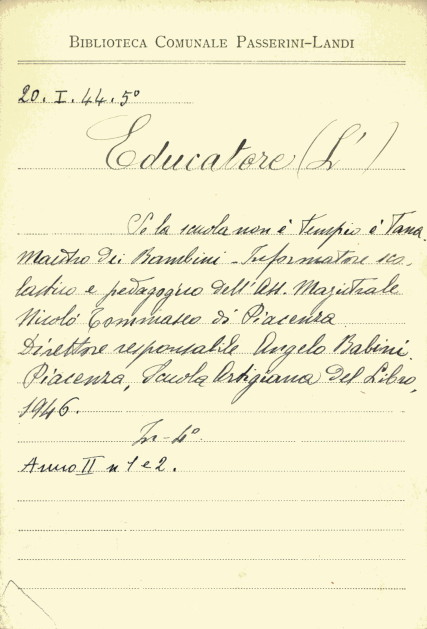 BIBLIOTECA COMUNALE PASSERINI-LANDI
20. I. 44. 5°
Educatore (L')
Se la scuola non è tempio è tana.
Maestro dei Bambini - Informatore sco-
lastico e pedagogico dell'Ass. Magistrale
Nicolò Tommaseo di Piacenza
Direttore responsabile Angelo Babini.
Piacenza, Scuola Artigiana del Libro,
1946.
In-4°
Anno II n 1 e 2.